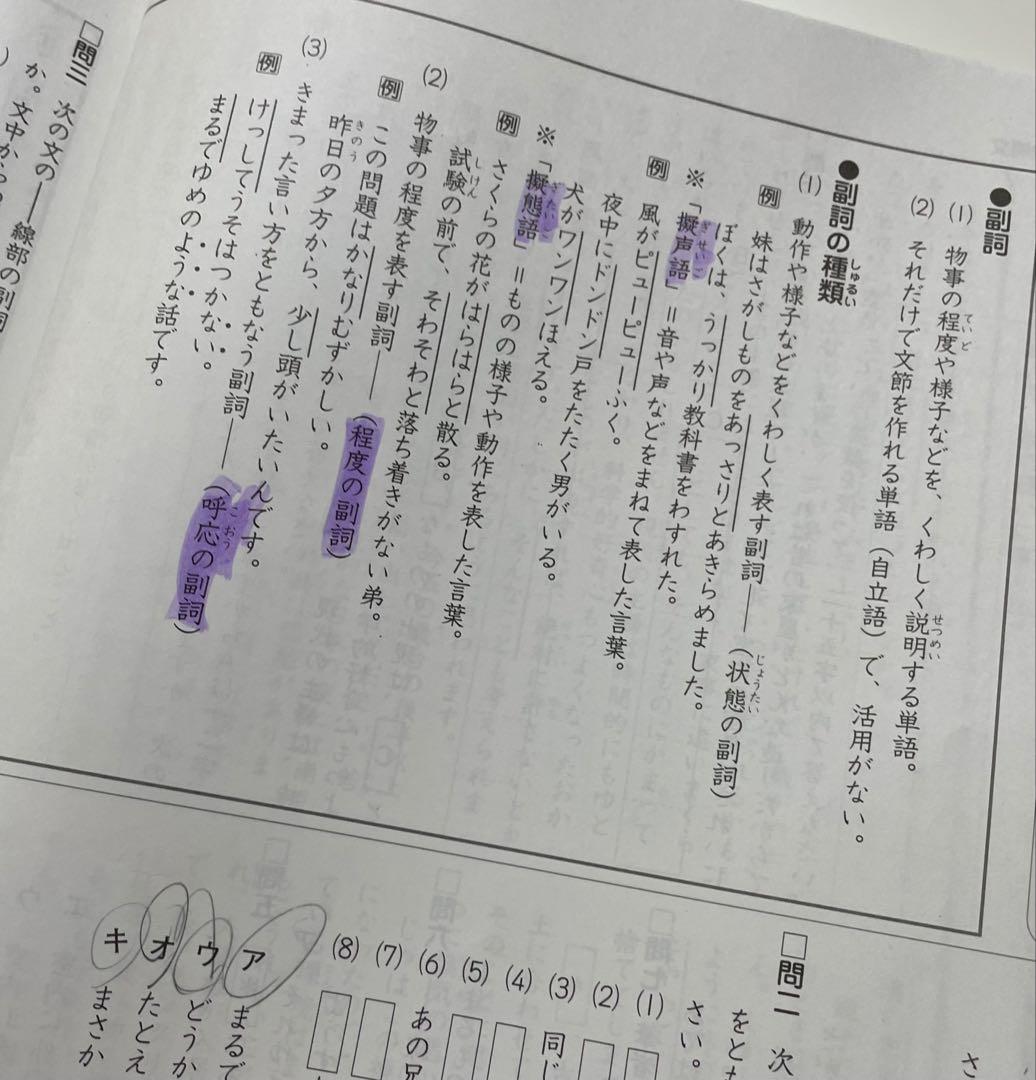 ●副詞
(1) 物事の程度や様子などを、くわしく説明する単語。
(2) それだけで文節を作れる単語（自立語）で、活用がない。
●副詞の種類
(1) 動作や様子などをくわしく表す副詞――（状態の副詞）
例 妹はさがしものをあっさりとあきらめました。
ぼくは、うっかり教科書をわすれた。
※「擬声語」＝音や声などをまねて表した言葉。
例 風がピューピューふく。
夜中にドンドン戸をたたく男がいる。
犬がワンワンほえる。
※「擬態語」＝ものの様子や動作を表した言葉。
例 さくらの花がはらはらと散る。
試験の前で、そわそわと落ち着きがない弟。
(2) 物事の程度を表す副詞――（程度の副詞）
例 この問題はかなりむずかしい。
昨日の夕方から、少し頭がいたいんです。
(3) きまった言い方をともなう副詞――（呼応の副詞）
例 けっしてうそはつかない。
まるでゆめのような話です。
□問三 次の文の――線部の副詞
か。文中から
さ
□問二 次
をとも
さい。
(1)
(2)
(3) 同じ
(4)
(5)
(6) あの兄
(7)
(8)
ア まるで
ウ どうか
オ たとえ
キ まさか